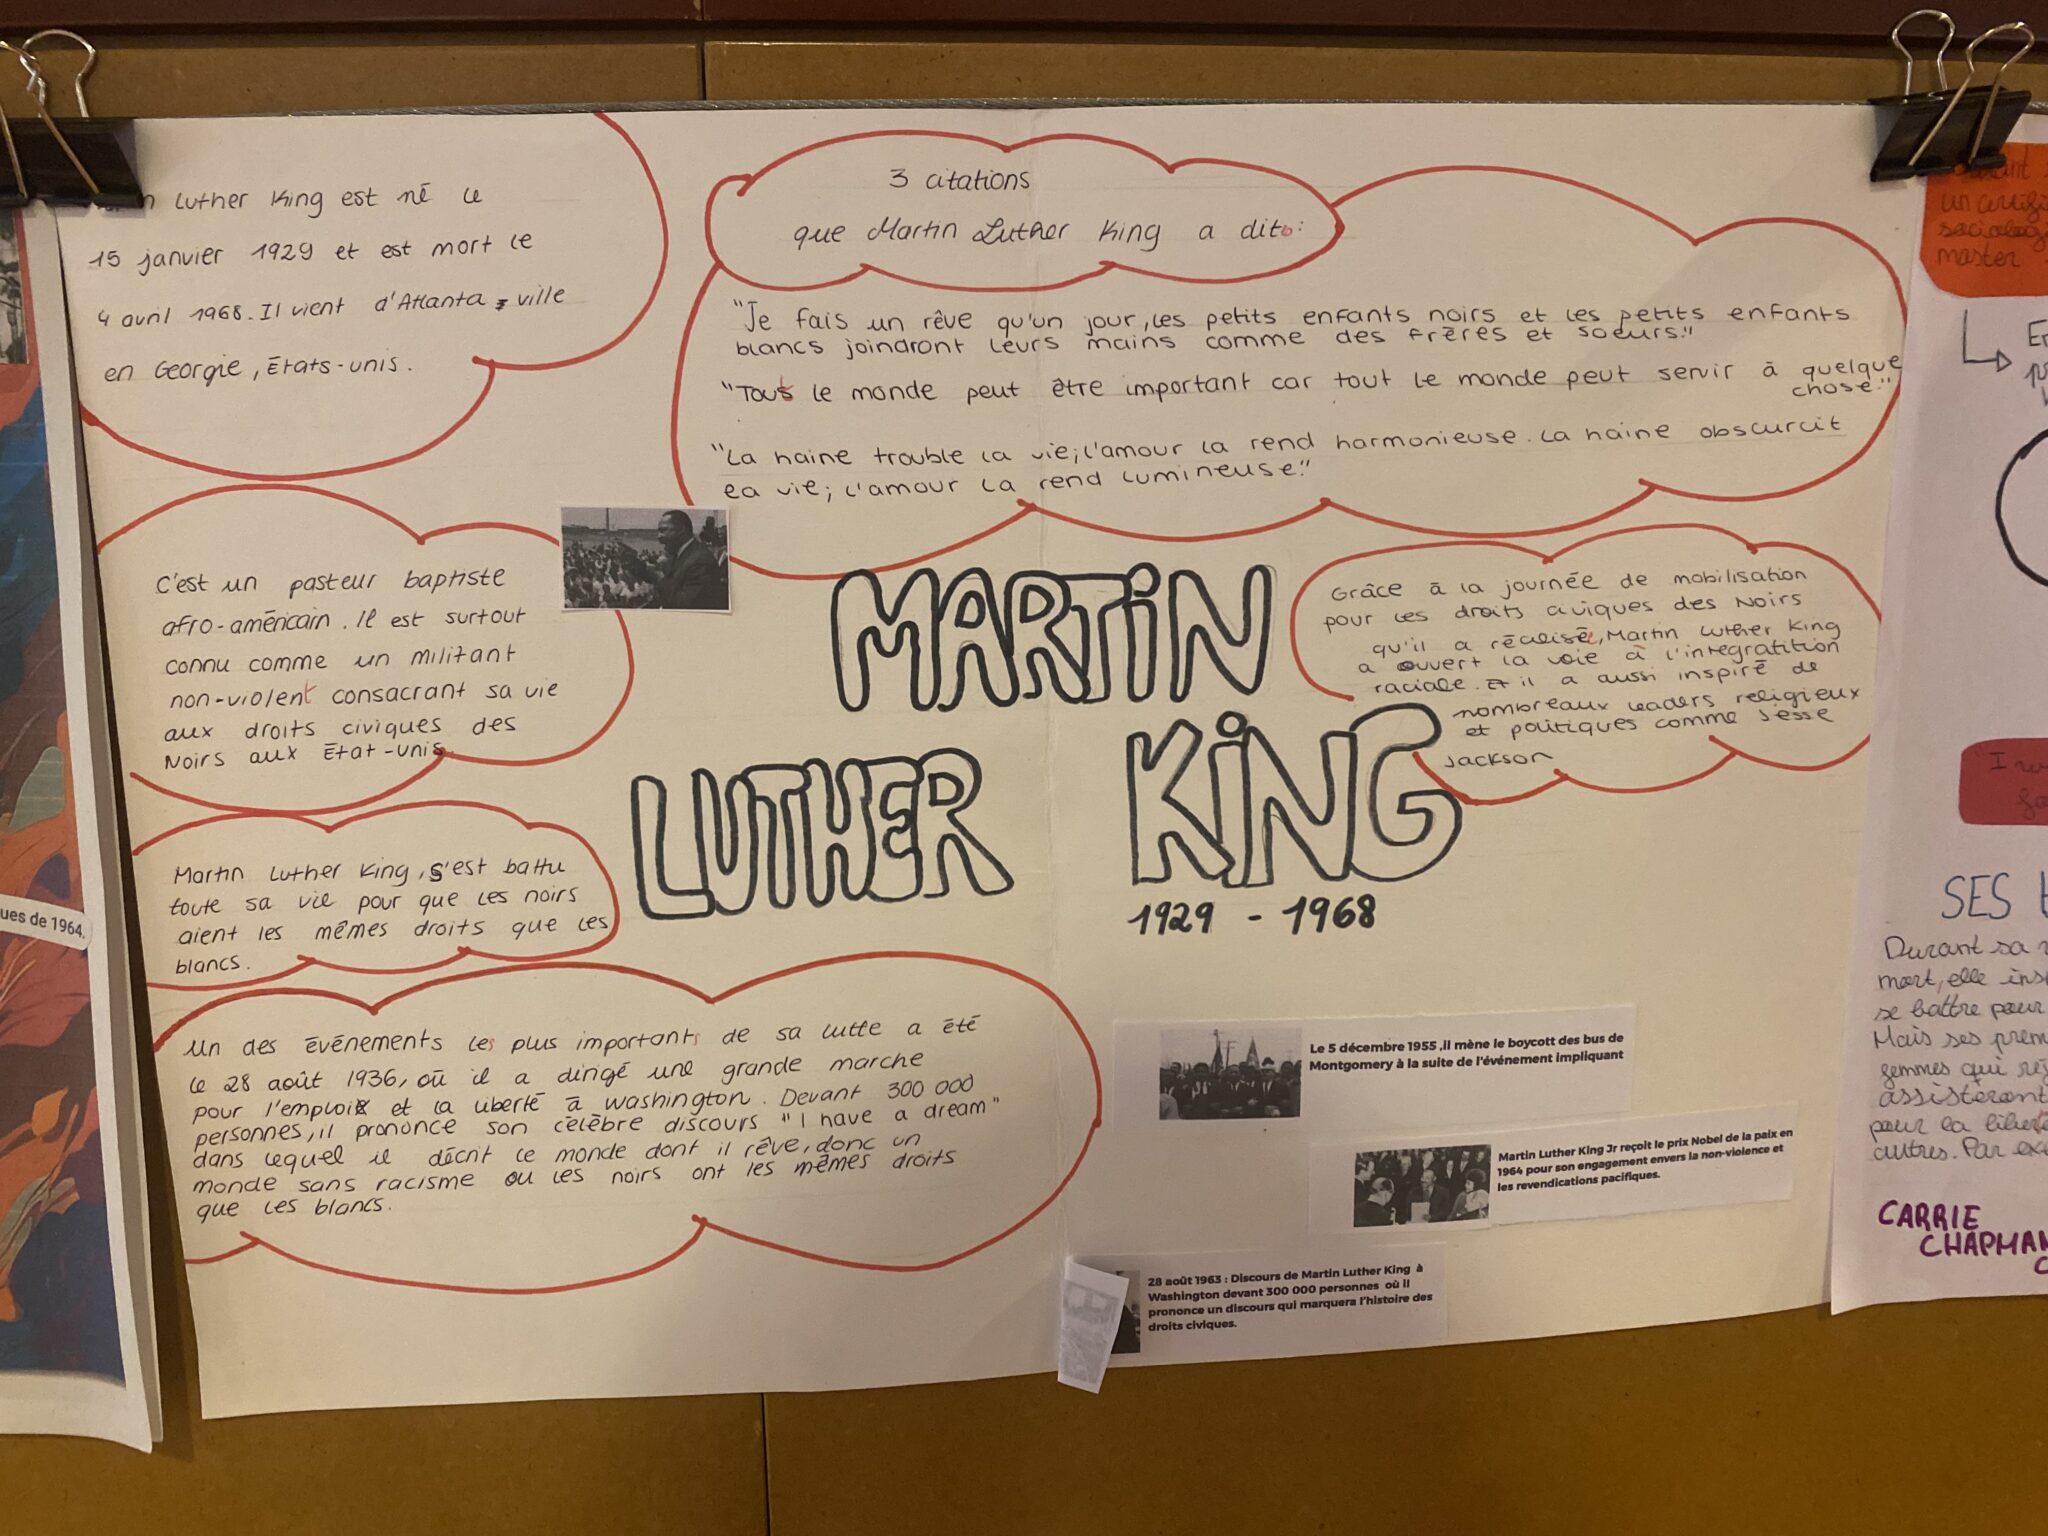 Luther King est né le
15 janvier 1929 et est mort le
4 avril 1968. Il vient d'Atlanta, ville
en Georgie, États-unis.
3 citations
que Martin Luther King a dit:
"Je fais un rêve qu'un jour, les petits enfants noirs et les petits enfants
blancs joindront leurs mains comme des frères et soeurs."
"Tout le monde peut être important car tout le monde peut servir à quelque
chose."
"La haine trouble la vie; l'amour la rend harmonieuse. La haine obscurcit
la vie; l'amour la rend lumineuse."
C'est un pasteur baptiste
afro-américain. Il est surtout
connu comme un militant
non-violent consacrant sa vie
aux droits civiques des
Noirs aux État-unis.
MARTIN
LUTHER KING
1929 - 1968
Grâce à la journée de mobilisation
pour les droits civiques des Noirs
qu'il a réalisée, Martin Luther King
a ouvert la voie à l'intégratition
raciale. Et il a aussi inspiré de
nombreaux leaders religieux
et politiques comme Jesse
Jackson
Martin Luther King, s'est battu
toute sa vie pour que les noirs
aient les mêmes droits que les
blancs.
Un des événements les plus importants de sa lutte a été
le 28 août 1936, où il a dirigé une grande marche
pour l'emploi et la liberté à Washington. Devant 300 000
personnes, il prononce son célèbre discours "I have a dream"
dans lequel il décrit le monde dont il rêve, donc un
monde sans racisme ou les noirs ont les mêmes droits
que les blancs.
Le 5 décembre 1955 ,il mène le boycott des bus de
Montgomery à la suite de l'événement impliquant
Martin Luther King Jr reçoit le prix Nobel de la paix en
1964 pour son engagement envers la non-violence et
les revendications pacifiques.
28 août 1963 : Discours de Martin Luther King à
Washington devant 300 000 personnes où il
prononce un discours qui marquera l'histoire des
droits civiques.
ues de 1964.
un
master
I
SES
Durant sa
mort, elle
se battre pour
Mais ses
qui
assisteront
pour la
autres. Par
CARRIE
CHAPMAN